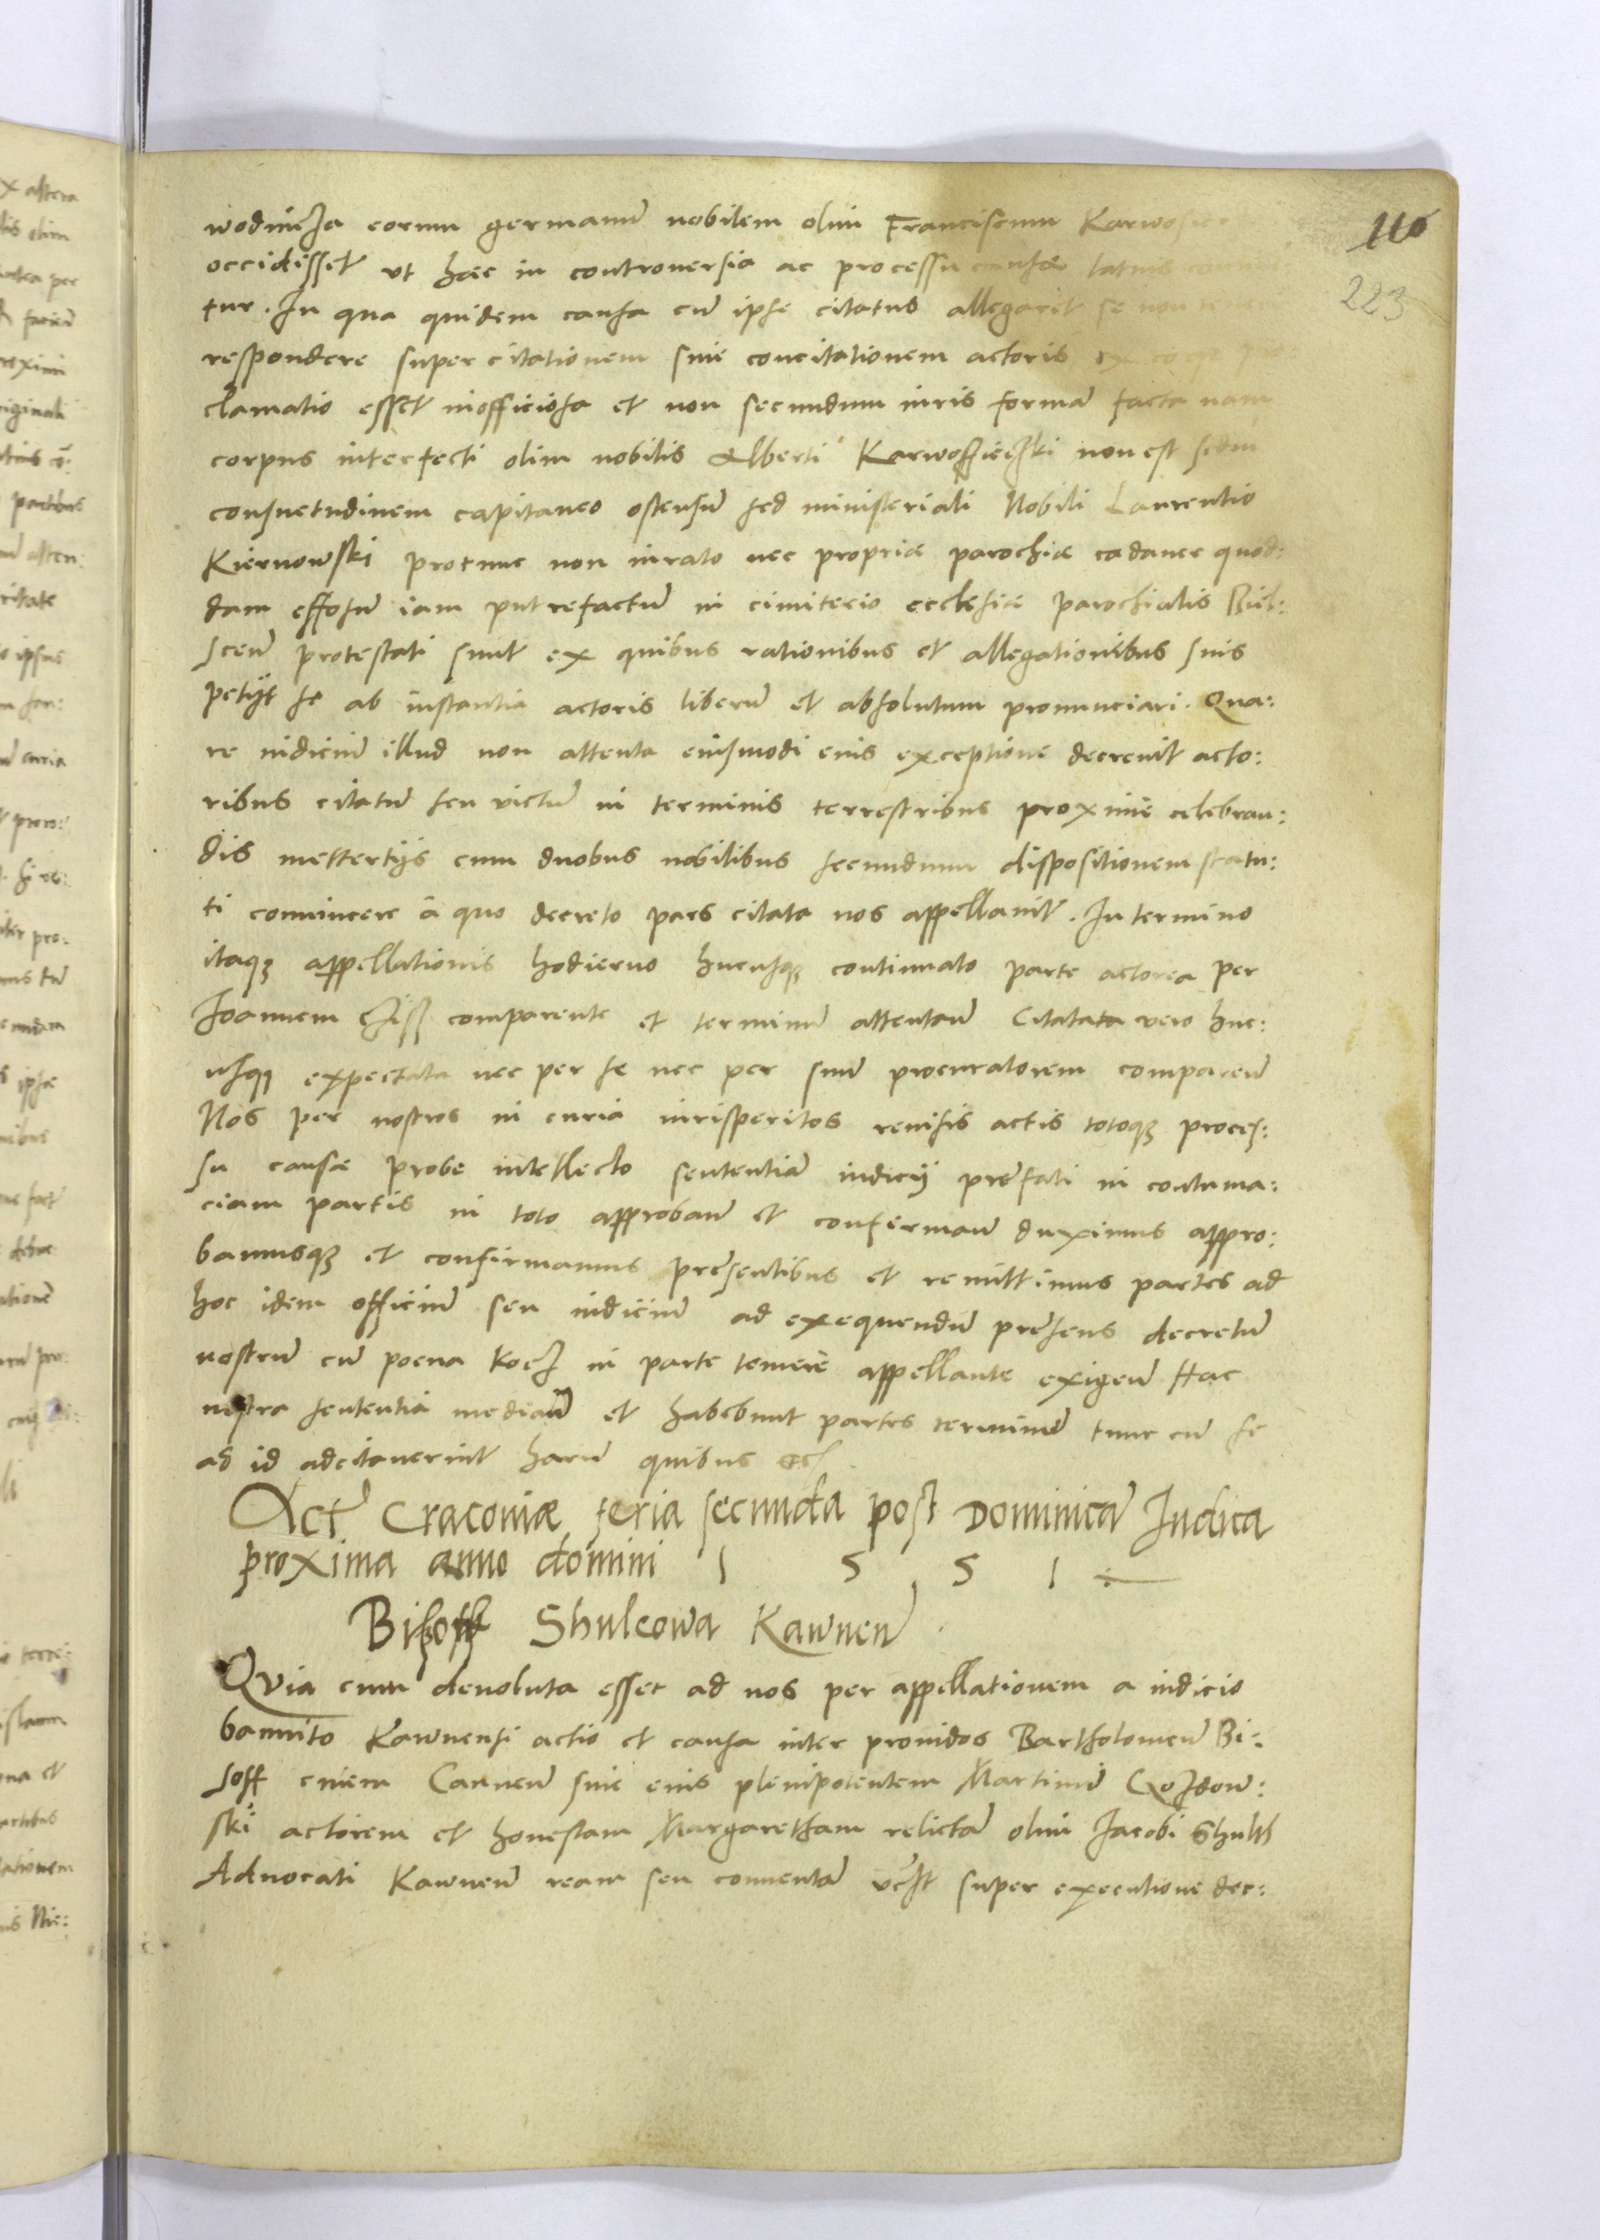 110
223
eorum germanū nobilem olim Franciscum
occidisset ut hæc in controversia ac processu causæ latius
tur. In qua quidem causa cū ipse citatus allegarit se non
respondere super citationem sive concitationem actoris
clamatio esset inofficiosa et non secundum iuris formā facta nam
corpus interfecti olim nobilis Alberti non est secdm
consuetudinem capitaneo ostensū sed ministeriali Nobili Laurentio
Kiernowski protunc non iurato nec propriæ parochiæ cadaver quod:
dam effosū iam putrefactū in cimiterio ecclesiæ parochialis Biel:
sceñ protestati sunt ex quibus rationibus et allegationibus suis
petijt se ab instantia actoris liberū et absolutum pronunciari. Qua:
re iudiciū illud non attenta eiusmodi eius exceptione decrevit acto:
ribus citatū seu victū in terminis terrestribus proximè celebran:
dis mettertijs cum duobus nobilibus secundum dispositionem statu:
ti convincere à quo decreto pars citata nos appellavit. In termino
itaq; appellationis hodierno hucusq; continuato parte actorea per
Joannem comparente et terminū attentañ Citatata vero huc:
usq; expectata nec per se nec per suū procuratorem compareñ
Nos per nostros in curia iurisperitos revisis actis totoq; proces:
su causæ probe intellecto sententiā iudicij prefati in contuma:
ciam partis in toto approbañ et confirmañ duximus appro:
bamusq; et confirmamus presentibus et remittimus partes ad
hoc idem officiū seu iudiciū ad exequendū presens decretū
nostrū cū poena Kocz in parte temerè appellante exigeñ Hac
nostra sententia mediañ et habebunt partes terminū tunc cū se
ad id adcitaverint harū quibus etc̃
Act̃ Cracoviæ feria secunda post Dominicā Judica
proxima anno domini 1 5 5 1
Bisoff Shulcowa Kawneñ
Quia cum devoluta esset ad nos per appellationem a iudicio
bannito Kawnensi actio et causa inter providos Bartholomeū Bi:
soff civem Cauneñ sive eius plenipotentem Martinū Gozdow:
ski actorem et honestam Margaretham relictā olim Jacobi Shultz
Advocati Kawneñ ream seu conventā super executione dec: